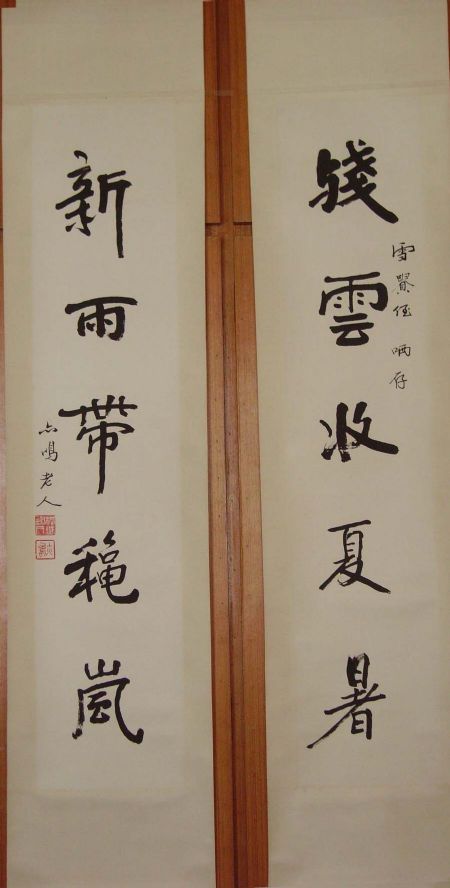 殘雲收夏暑
雪賢侄 哂存
新雨帶穐嵐
鳴老人